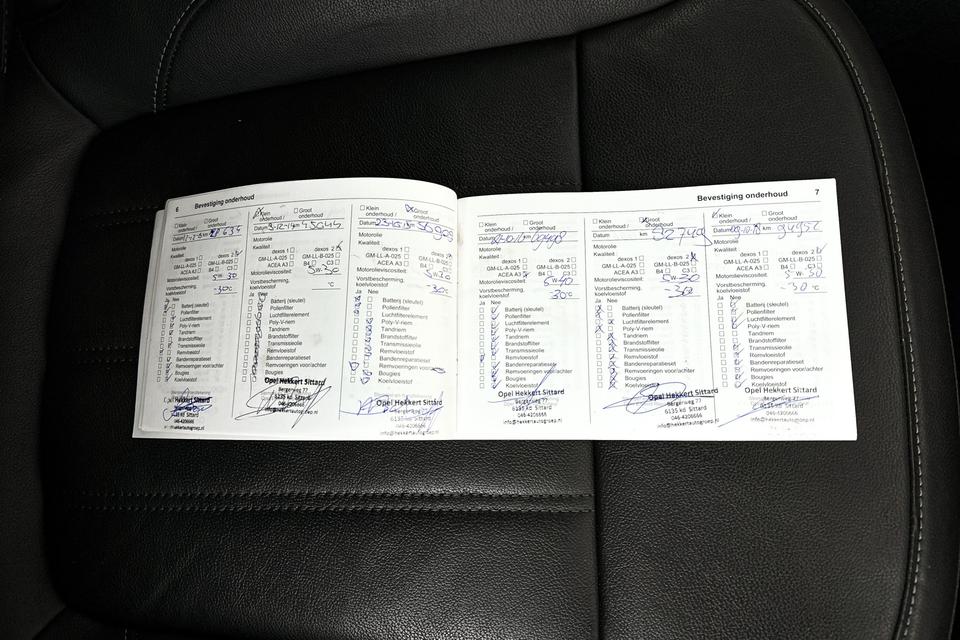 6 Bevestiging onderhoud
Klein onderhoud / Groot onderhoud
Datum km
Motorolie
Kwaliteit
dexos 1 dexos 2
GM-LL-A-025 GM-LL-B-025
ACEA A3 B4 C3
Motorolieviscositeit: 5W-30
Vorstbescherming,
koelvloeistof -30°C
Ja Nee
Batterij (sleutel)
Pollenfilter
Luchtfilterelement
Poly-V-riem
Tandriem
Brandstoffilter
Transmissieolie
Remvloeistof
Bandenreparatieset
Remvoeringen voor/achter
Bougies
Koelvloeistof
Klein onderhoud / Groot onderhoud
Datum 3-12-14 km 45045
Motorolie
Kwaliteit
dexos 1 dexos 2
GM-LL-A-025 GM-LL-B-025
ACEA A3 B4 C3
Motorolieviscositeit: 5W-30
Vorstbescherming,
koelvloeistof °C
Ja Nee
Batterij (sleutel)
Pollenfilter
Luchtfilterelement
Poly-V-riem
Tandriem
Brandstoffilter
Transmissieolie
Remvloeistof
Bandenreparatieset
Remvoeringen voor/achter
Bougies
Koelvloeistof
Opel Hekkert Sittard
Bergerweg 77
6135 kd Sittard
046-4206666
info@hekkertautogroep.nl
Klein onderhoud / Groot onderhoud
Datum km
Motorolie
Kwaliteit
dexos 1 dexos 2
GM-LL-A-025 GM-LL-B-025
ACEA A3 B4 C3
Motorolieviscositeit:
Vorstbescherming,
koelvloeistof -30°C
Ja Nee
Batterij (sleutel)
Pollenfilter
Luchtfilterelement
Poly-V-riem
Tandriem
Brandstoffilter
Transmissieolie
Remvloeistof
Bandenreparatieset
Remvoeringen voor/achter
Bougies
Koelvloeistof
Opel Hekkert Sittard
Bergerweg 77
6135 kd Sittard
046-4206666
info@hekkertautogroep.nl
Bevestiging onderhoud 7
Klein onderhoud / Groot onderhoud
Datum km
Motorolie
Kwaliteit
dexos 1 dexos 2
GM-LL-A-025 GM-LL-B-025
ACEA A3 B4 C3
Motorolieviscositeit:
Vorstbescherming,
koelvloeistof 30°C
Ja Nee
Batterij (sleutel)
Pollenfilter
Luchtfilterelement
Poly-V-riem
Tandriem
Brandstoffilter
Transmissieolie
Remvloeistof
Bandenreparatieset
Remvoeringen voor/achter
Bougies
Koelvloeistof
Opel Hekkert Sittard
Bergerweg 77
6135 kd Sittard
046-4206666
info@hekkertautogroep.nl
Klein onderhoud / Groot onderhoud
Datum km 82749
Motorolie
Kwaliteit
dexos 1 dexos 2
GM-LL-A-025 GM-LL-B-025
ACEA A3 B4 C3
Motorolieviscositeit: 5W-30
Vorstbescherming,
koelvloeistof -30
Ja Nee
Batterij (sleutel)
Pollenfilter
Luchtfilterelement
Poly-V-riem
Tandriem
Brandstoffilter
Transmissieolie
Remvloeistof
Bandenreparatieset
Remvoeringen voor/achter
Bougies
Koelvloeistof
Opel Hekkert Sittard
Bergerweg 77
6135 kd Sittard
046-4206666
info@hekkertautogroep.nl
Klein onderhoud / Groot onderhoud
Datum km
Motorolie
Kwaliteit
dexos 1 dexos 2
GM-LL-A-025 GM-LL-B-025
ACEA A3 B4 C3
Motorolieviscositeit: 5W30
Vorstbescherming,
koelvloeistof -30°C
Ja Nee
Batterij (sleutel)
Pollenfilter
Luchtfilterelement
Poly-V-riem
Tandriem
Brandstoffilter
Transmissieolie
Remvloeistof
Bandenreparatieset
Remvoeringen voor/achter
Bougies
Koelvloeistof
Opel Hekkert Sittard
6135 kd Sittard
046-4206666
info@hekkertautogroep.nl